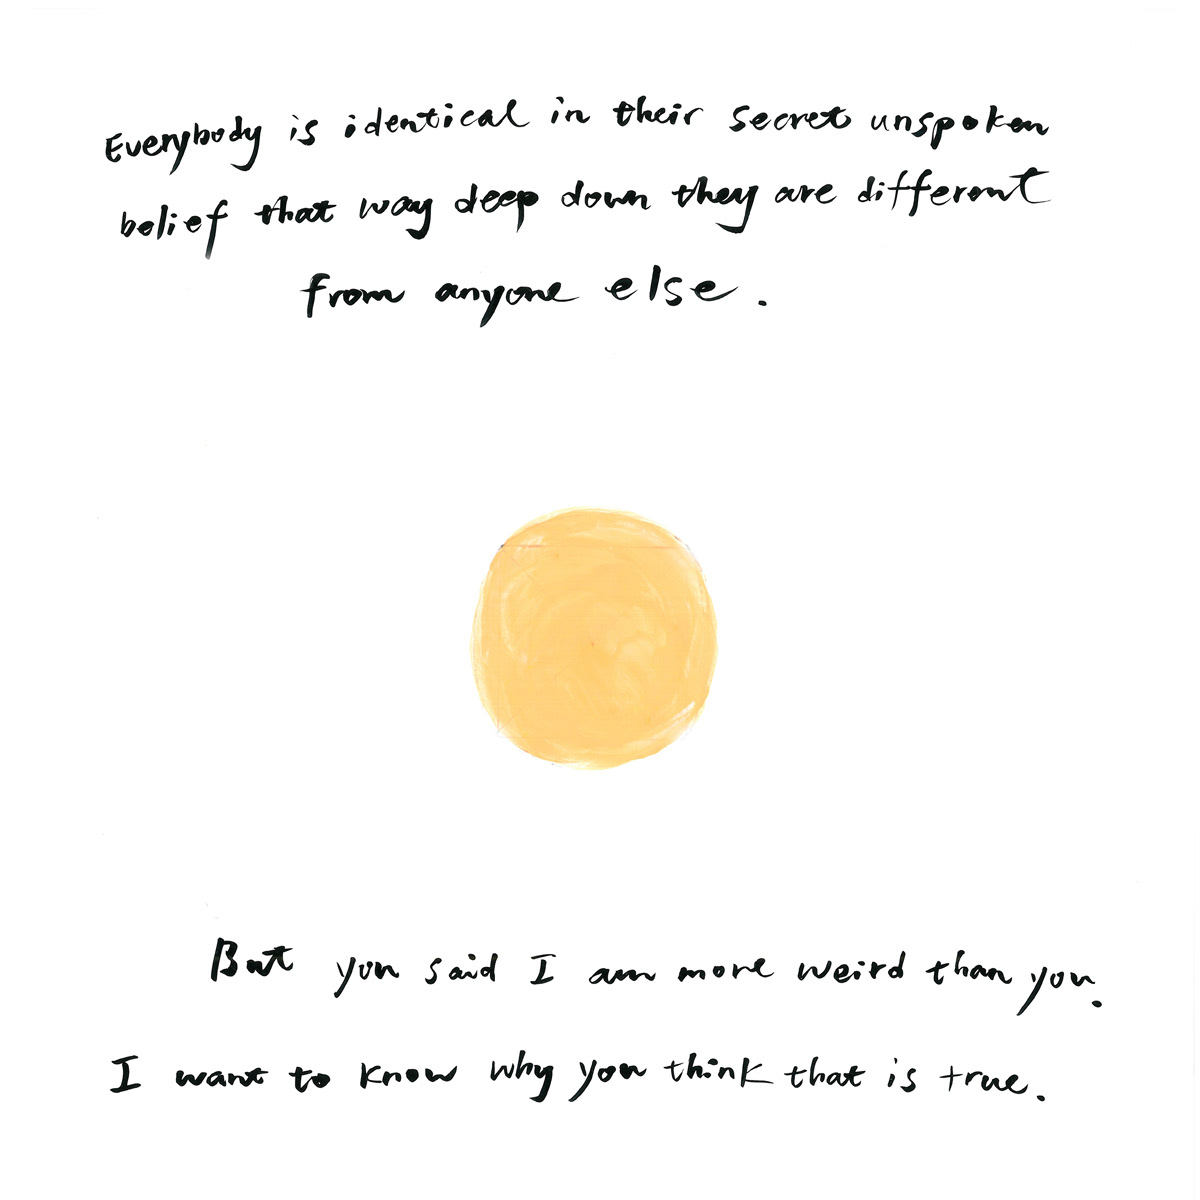 Everybody is identical in their secret unspoken
belief that way deep down they are different
from anyone else.
But you said I am more weird than you.
I want to know why you think that is true.